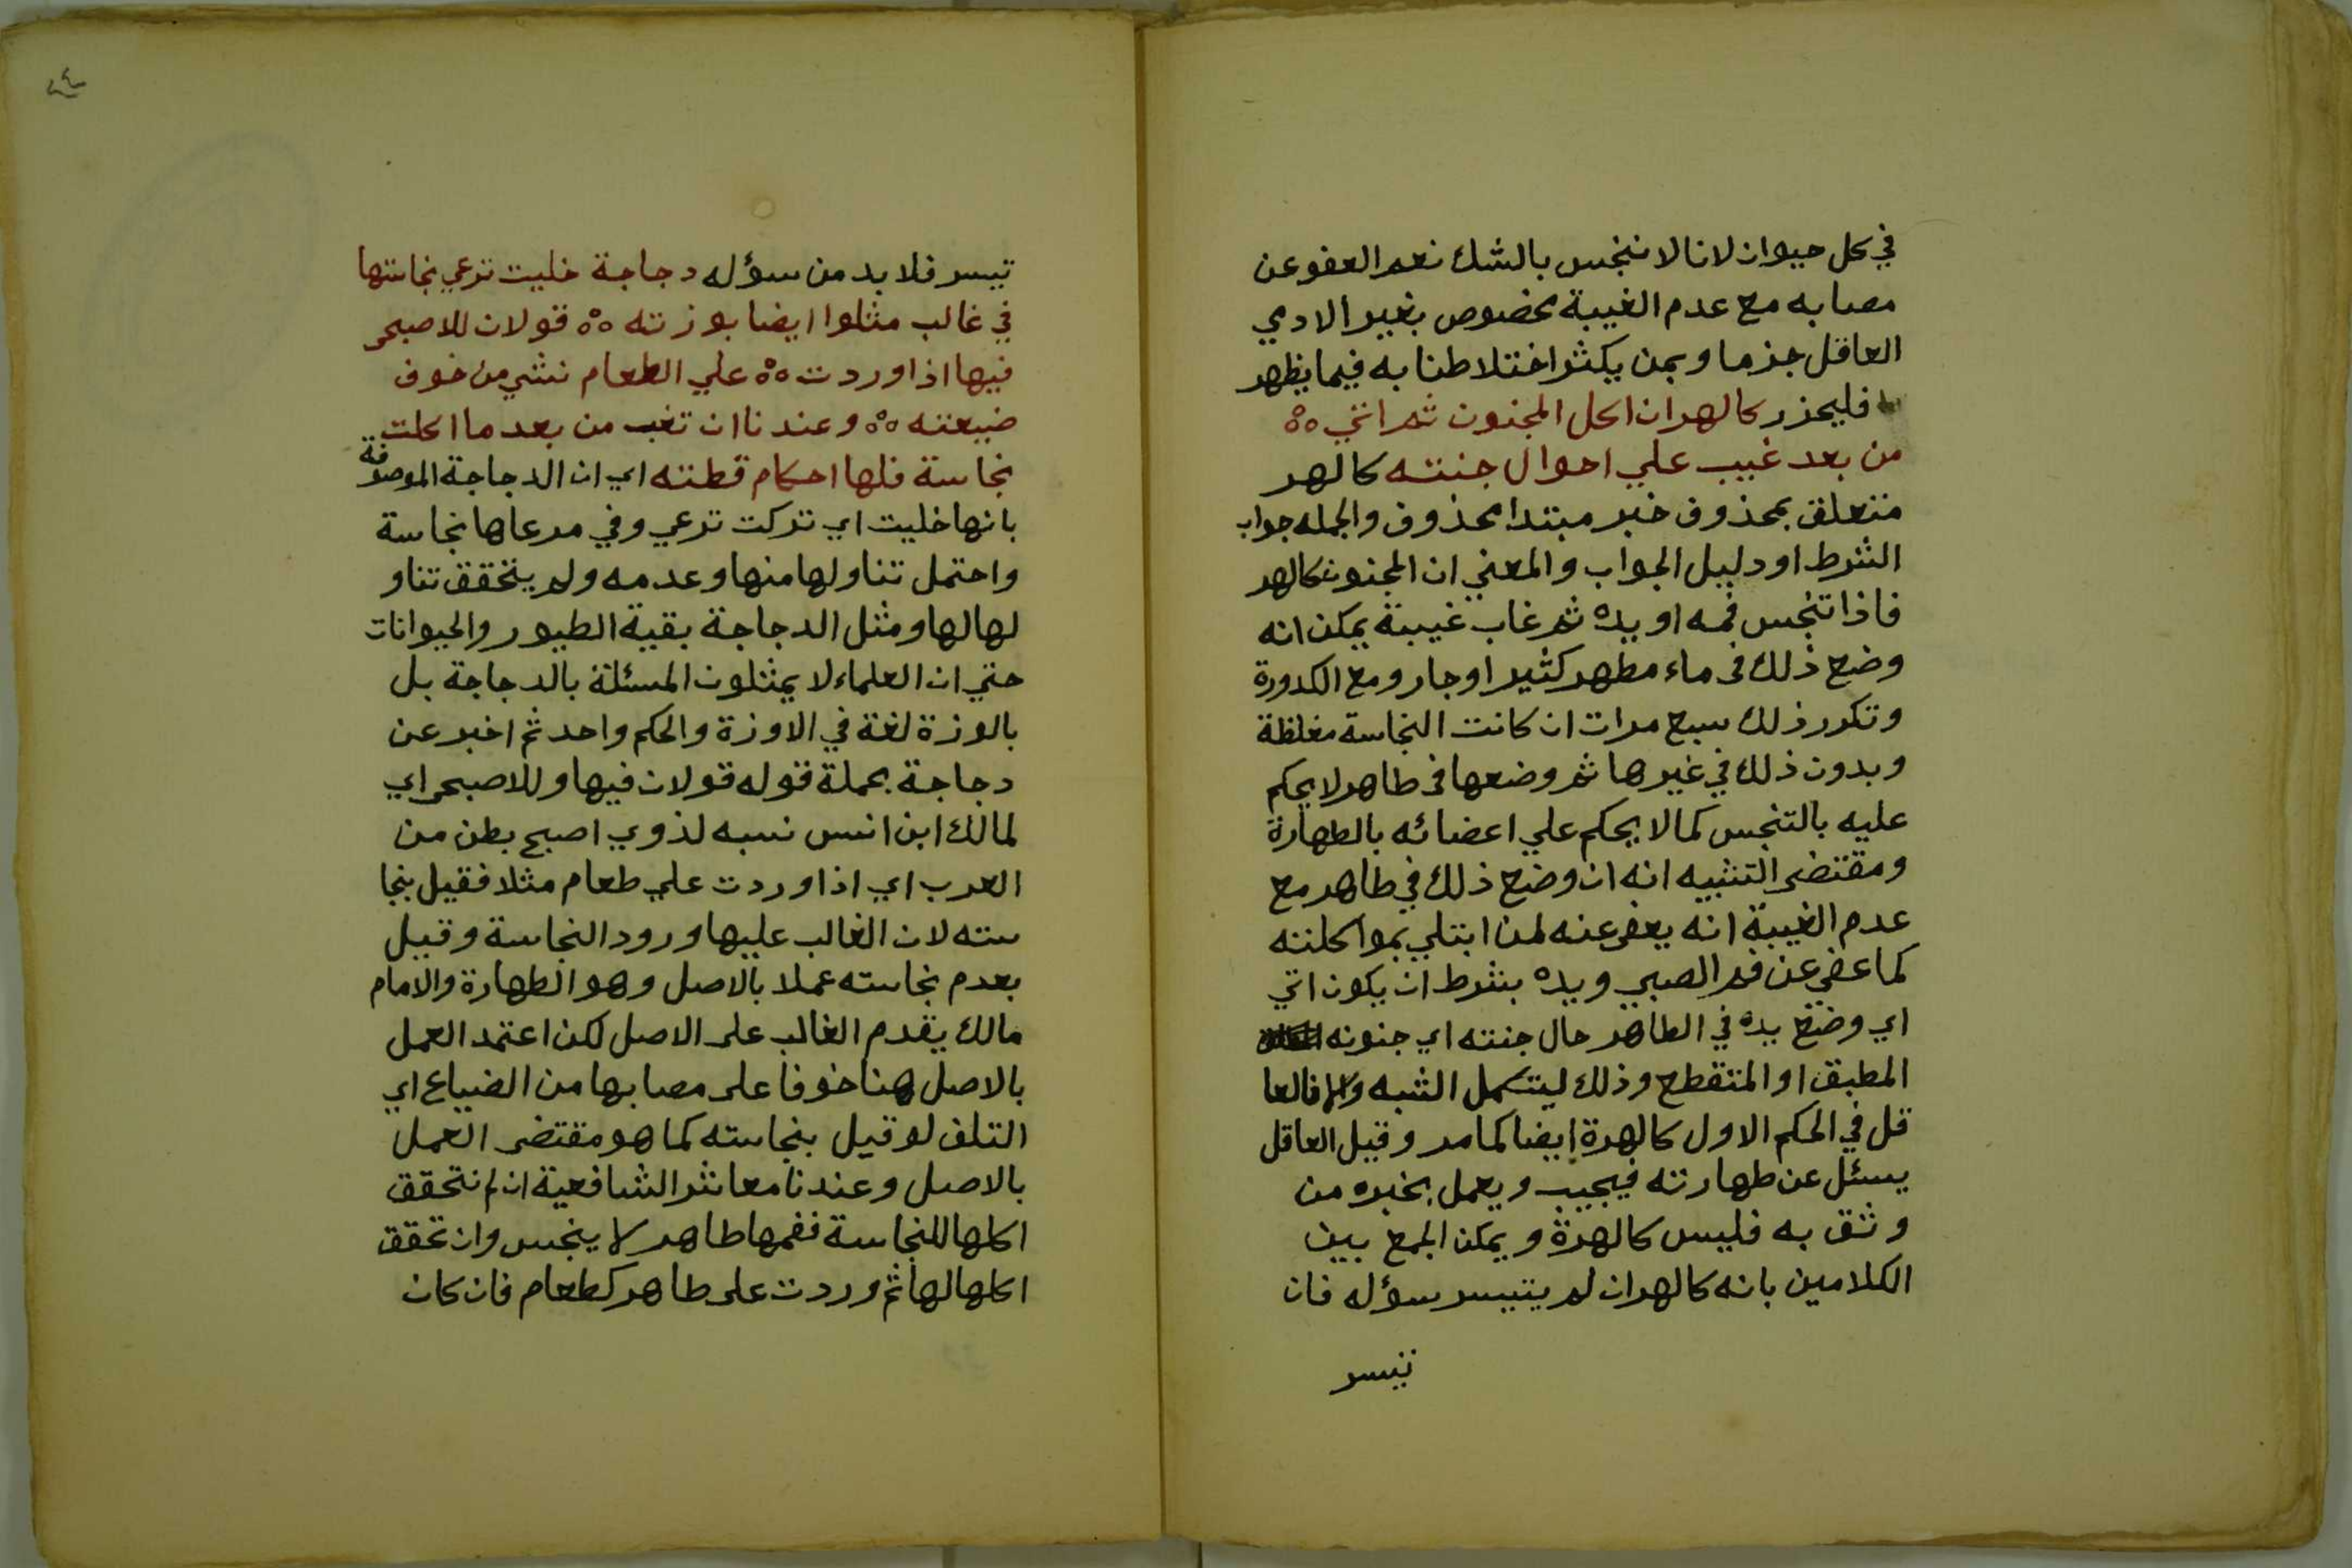 في كل حيوان لانا لا ننجس بالشك نعم العفو عن
مصابه مع عدم الغيبة مخصوص بغير الادمي
العاقل جزما وبمن يكثر اختلاطنا به فيما يظهر
فليحذر كالهر ان اكل المجنون ثم اتي ٥٥
من بعد غيب علي احوال جنته كالهر
متعلق بمحذوف خبر مبتدا محذوف والجمله جواب
الشرط او دليل الجواب والمعني ان المجنون كالهر
فاذا تنجس فمه او يده ثم غاب غيبة يمكن انه
وضع ذلك في ماء مطهر كثير او جار ومع الكدورة
وتكرر ذلك سبع مرات ان كانت النجاسة مغلظة
وبدون ذلك في غيرها ثم وضعها في طاهر لا يحكم
عليه بالتنجس كما لا يحكم علي اعضائه بالطهارة
ومقتضى التشبيه انه ان وضع ذلك في طاهر مع
عدم الغيبة انه يعفى عنه لمن ابتلي بمواكلته
كما عفي عن فم الصبي ويده بشرط ان يكون اتي
اي وضع يده في الطاهر حال جنته اي جنونه
المطبق او المتقطع وذلك ليتكمل الشبه والا فالعا
قل في الحكم الاول كالهرة ايضا كما مر وقيل العاقل
يسئل عن طهارته فيجيب ويعمل بخبره من
وثق به فليس كالهرة ويمكن الجمع بين
الكلامين بانه كالهر ان لم يتيسر سؤله فان
تيسر
٢٤
تيسر فلا بد من سؤله دجاجة خليت ترعي نجاستها
في غالب مثلوا ايضا بوزته ٥٥ قولان للاصبحى
فيها اذا وردت ٥٥ علي الطعام نشي من خوف
ضيعته ٥٥ وعندنا ان تغب من بعد ما اكلت
نجاسة فلها احكام قطته اي ان الدجاجة الموصوفة
بانها خليت اي تركت ترعي وفي مرعاها نجاسة
واحتمل تناولها منها وعدمه ولم يتحقق تناو
لها لها ومثل الدجاجة بقية الطيور والحيوانات
حتي ان العلماء لا يمثلون المسئلة بالدجاجة بل
بالوزة لغة في الاوزة والحكم واحد ثم اخبر عن
دجاجة بجملة قوله قولان فيها وللاصبحى اي
لمالك ابن انس نسبه لذوي اصبح بطن من
العرب اي اذا وردت علي طعام مثلا فقيل بنجا
سته لان الغالب عليها ورود النجاسة وقيل
بعدم نجاسته عملا بالاصل وهو الطهارة والامام
مالك يقدم الغالب على الاصل لكن اعتمد العمل
بالاصل هنا خوفا على مصابها من الضياع اي
التلف لو قيل بنجاسته كما هو مقتضى العمل
بالاصل وعندنا معاشر الشافعية ان لم نتحقق
اكلها للنجاسة ففمها طاهر لا ينجس وان تحقق
اكلها لها ثم وردت على طاهر كطعام فان كان